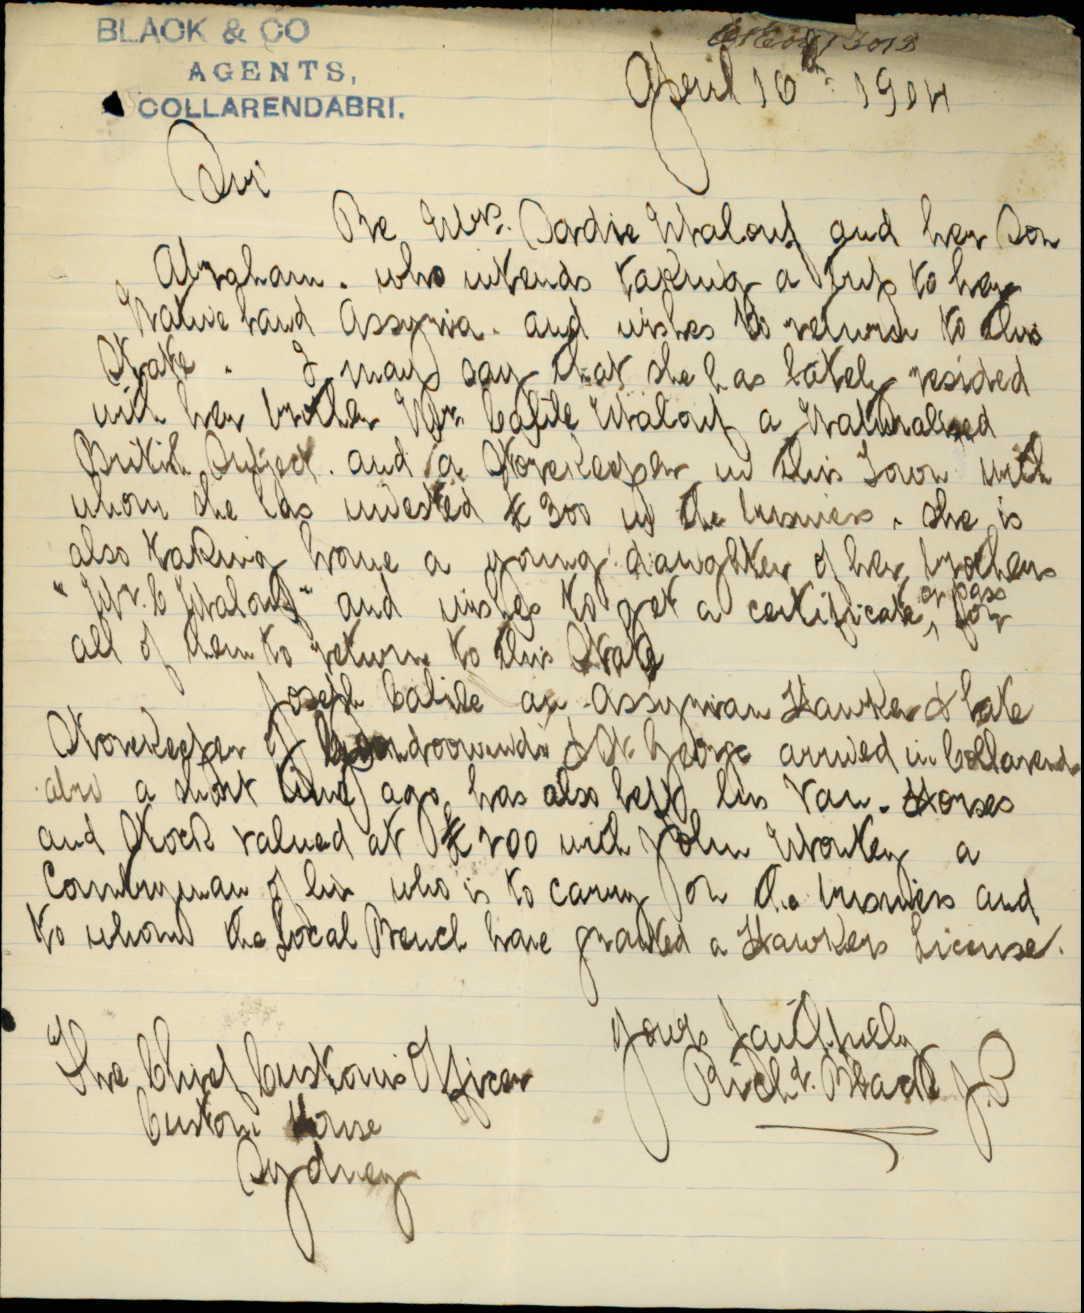 BLACK & CO
AGENTS,
COLLARENDABRI.
April 10th 1904
Sir
Re Mrs. Sardie Malouf and her Son
Abraham. who intends taking a trip to her
Native Land Assyria. and wishes to return to this
State. I may say that she has lately resided
with her brother Mr. Calile Malouf a Naturalised
British Subject. and a Storekeeper in this Town with
whom she has invested £300 in the business. She is
also taking home a young daughter of her brothers
"Mr. C Malouf" and wishes to get a certificate, or pass for
all of them to return to this State
Joseph Calile an Assyrian Hawker & late
Storekeeper of & St. George arrived in Collarend-
abri a short time ago, has also left his Van. Horses
and Stock valued at £200 with John a
Countryman of his who is to carry on the business and
to whom the Local Bench have granted a Hawkers License.
Yours faithfully
Richd. Black J.P
The Chief Customs Officer
Custom House
Sydney